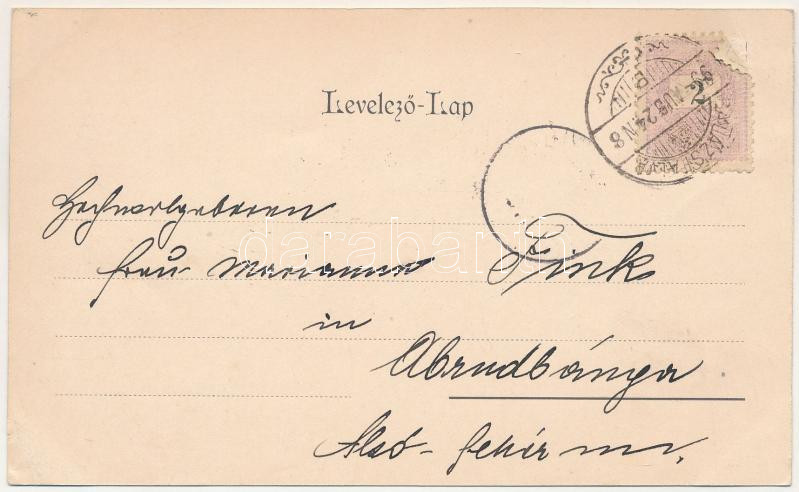 Levelező-Lap
99 AUG 24 N 8
2
Hochwolgeboren
Frau Marianne Fink
in
Abrudbánya
Alsó-fehér m.
darabanth